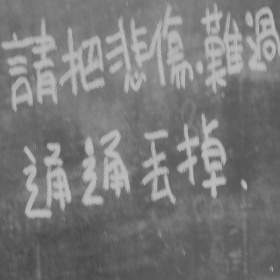 請把悲傷.難過
通通丟掉.